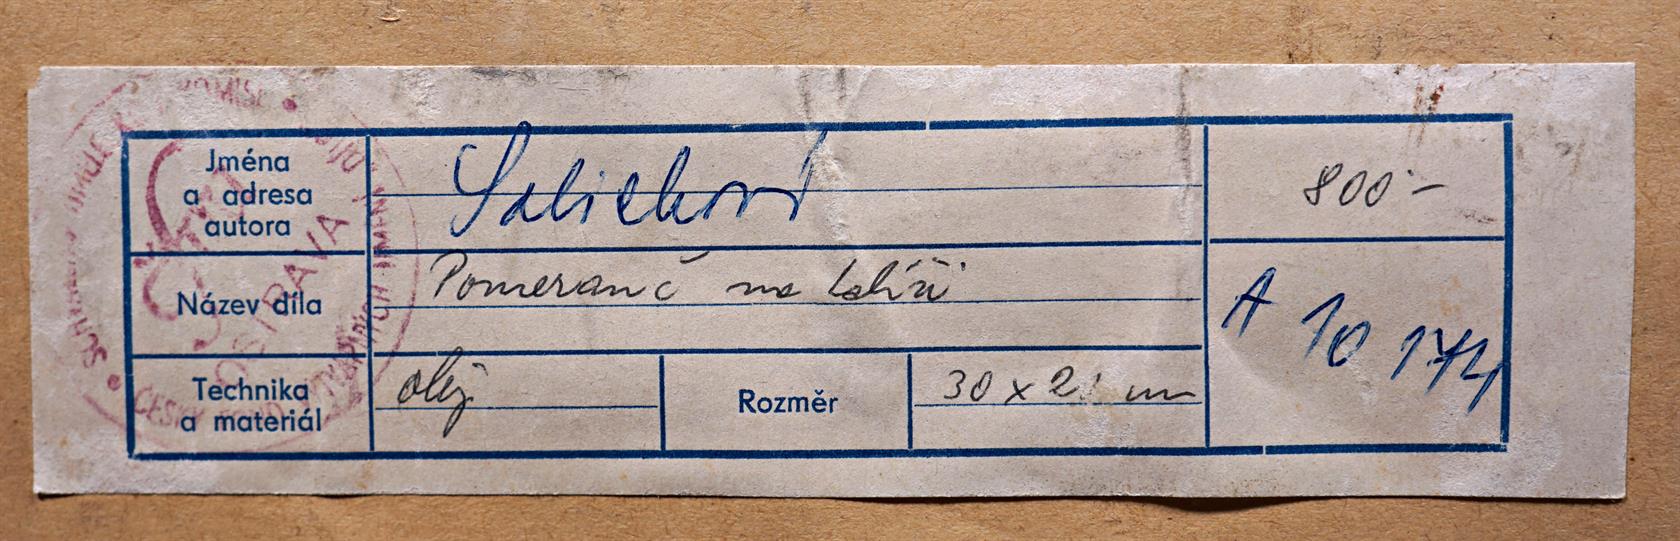 Jména
a adresa
autora
800.-
Název díla
Pomeranč na talíři
A 10 174
Technika
a materiál
olej
Rozměr
30 x 21 cm
OSTRAVA